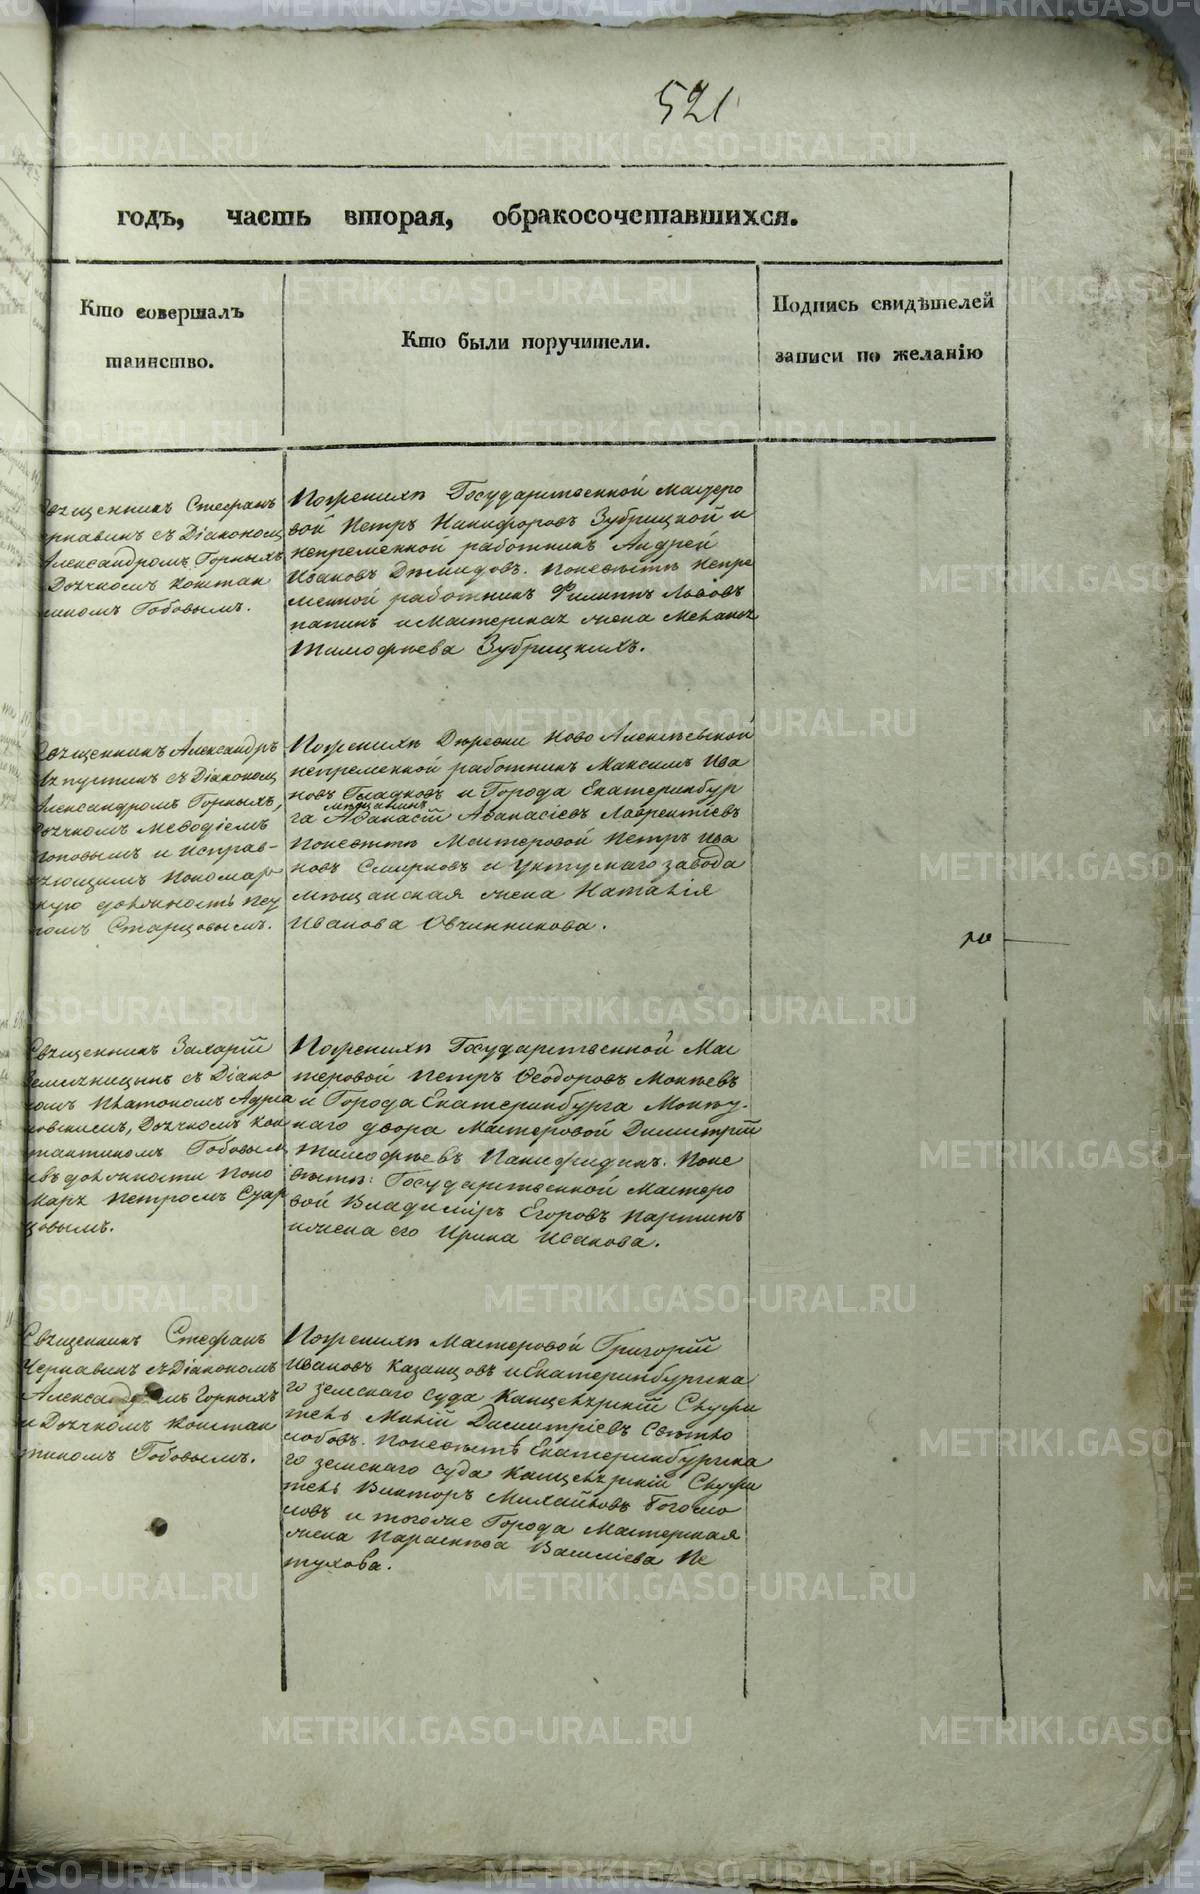 521
годъ, часть вторая, обракосочетавшихся.
Кто совершалъ
таинство.
Кто были поручители.
Подпись свидѣтелей
записи по желанію
Священникъ Стефанъ
Чернавинъ съ Діакономъ
Александромъ Горныхъ
Дьячкомъ Констан
тиномъ Гобовымъ.
Поженихѣ Государственной Мастеро
вой Петръ Никифоровъ Зубрицкой и
непременной работникъ Андрей
Ивановъ Демидовъ. Поневѣстѣ непре
менной работникъ Филиппъ Львовъ
папинъ и Мастерская жена Меланья
Тимофѣева Зубрицкихъ.
Священникъ Александръ
съ Діакономъ
Александромъ Горныхъ,
Дьячкомъ Меѳодіемъ
Поповымъ и исправ-
ляющимъ Пономар
скую должность Пет
ромъ Старцовымъ.
Поженихѣ Деревни Ново Алексѣевской
непременной работникъ Максимъ Ива
новъ Гладковъ и Города Екатеринбур
мѣщанинъ
га Аѳанасій Аѳанасіевъ Лаврентіевъ
Поневѣстѣ Мастеровой Петръ Ива
новъ Смирновъ и Уктускаго завода
мѣщанская жена Наталія
Иванова Овчинникова.
Священникъ Захарій
Земляницынъ съ Діако
номъ Платономъ Адриа
новскимъ, Дьячкомъ Кон
стантиномъ Гобовымъ
и въ должности Поно
маря Петромъ Стар
цовымъ.
Поженихѣ Государственной Мас
теровой Петръ Ѳеодоровъ Мокѣевъ
и Города Екатеринбурга Монет-
наго двора Мастеровой Димитрій
Тимофѣевъ Панифидинъ. Поне
вѣстѣ: Государственной Мастеро
вой Владиміръ Егоровъ Партинъ
и жена его Ирина Исакова.
Священникъ Стефанъ
Чернавинъ съ Діакономъ
Александромъ Горныхъ
и Дьячкомъ Констан
тиномъ Гобовымъ.
Поженихѣ Мастеровой Григорій
Ивановъ Казанцовъ и Екатеринбургска
го земскаго суда Канцелярскій Служи
тель Димитріевъ Свѣтло
лобовъ. Поневѣстѣ Екатеринбургска
го земскаго суда Канцелярскій Служи
тель Викторъ Михайловъ Богосло
ловъ и тогоже Города Мастерская
жена Параскева Василіева Пе
тухова.